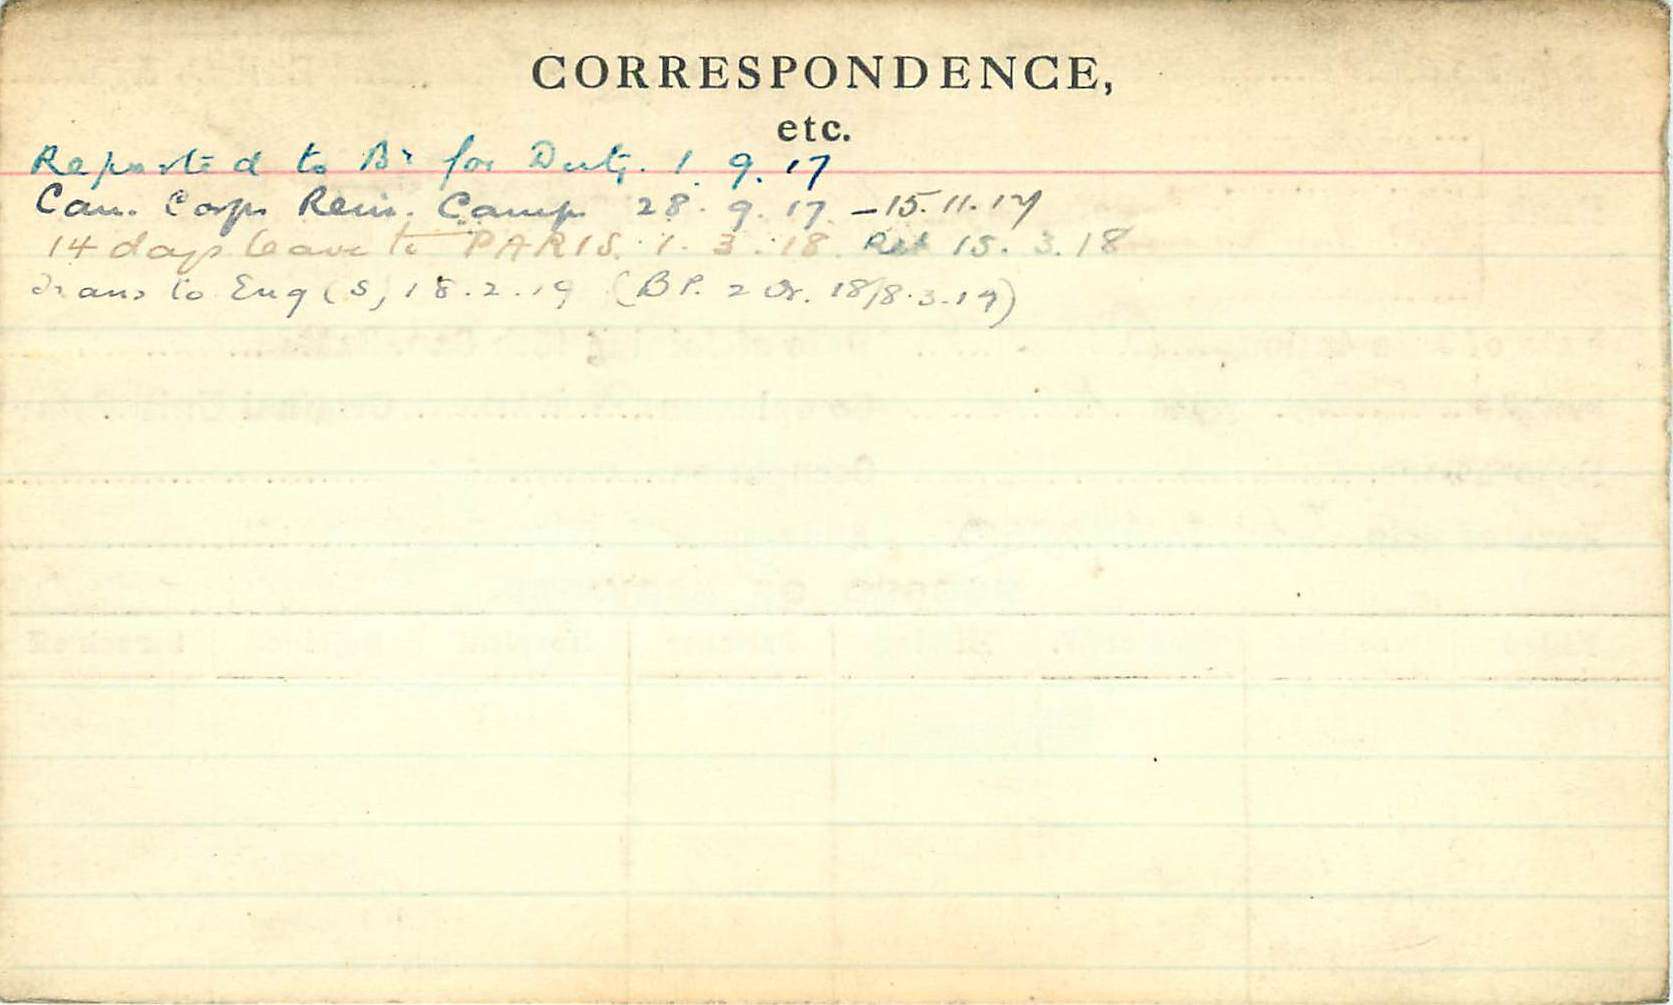 CORRESPONDENCE,
etc.
Reported to Bn for Duty. 1. 9. 17
Can. Corps Rein. Camp 28. 9. 17 - 15. 11. 17
14 days leave to PARIS. 1. 3. 18. Ret 15. 3. 18
Trans to Eng (S) 18.2.19 (BP. 2 Or. 18/8.3.19)